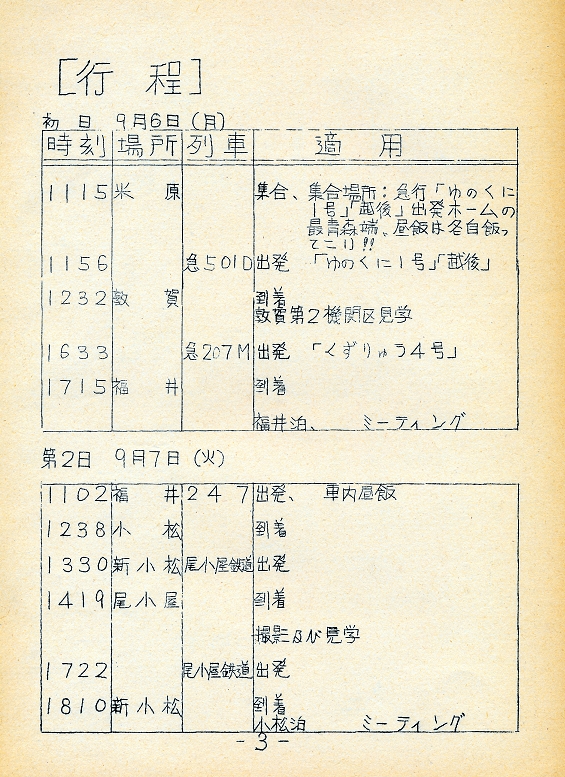 [行 程]
初 日 9月6日(月)
時刻 場所 列車 適 用
1115 米 原 集合、集合場所:急行「ゆのくに
1号」「越後」出発ホームの
最青森端、昼飯は各自飯っ
てこい!!
1156 急501D 出発 「ゆのくに1号」「越後」
1232 敦 賀 到着
敦賀第2機関区見学
1633 急207M 出発 「くずりゅう4号」
1715 福 井 到着
福井泊、 ミーティング
第2日 9月7日(火)
1102 福 井 247 出発、 車内昼飯
1238 小 松 到着
1330 新小松 尾小屋鉄道 出発
1419 尾小屋 到着
撮影及び見学
1722 尾小屋鉄道 出発
1810 新小松 到着
小松泊 ミーティング
-3-